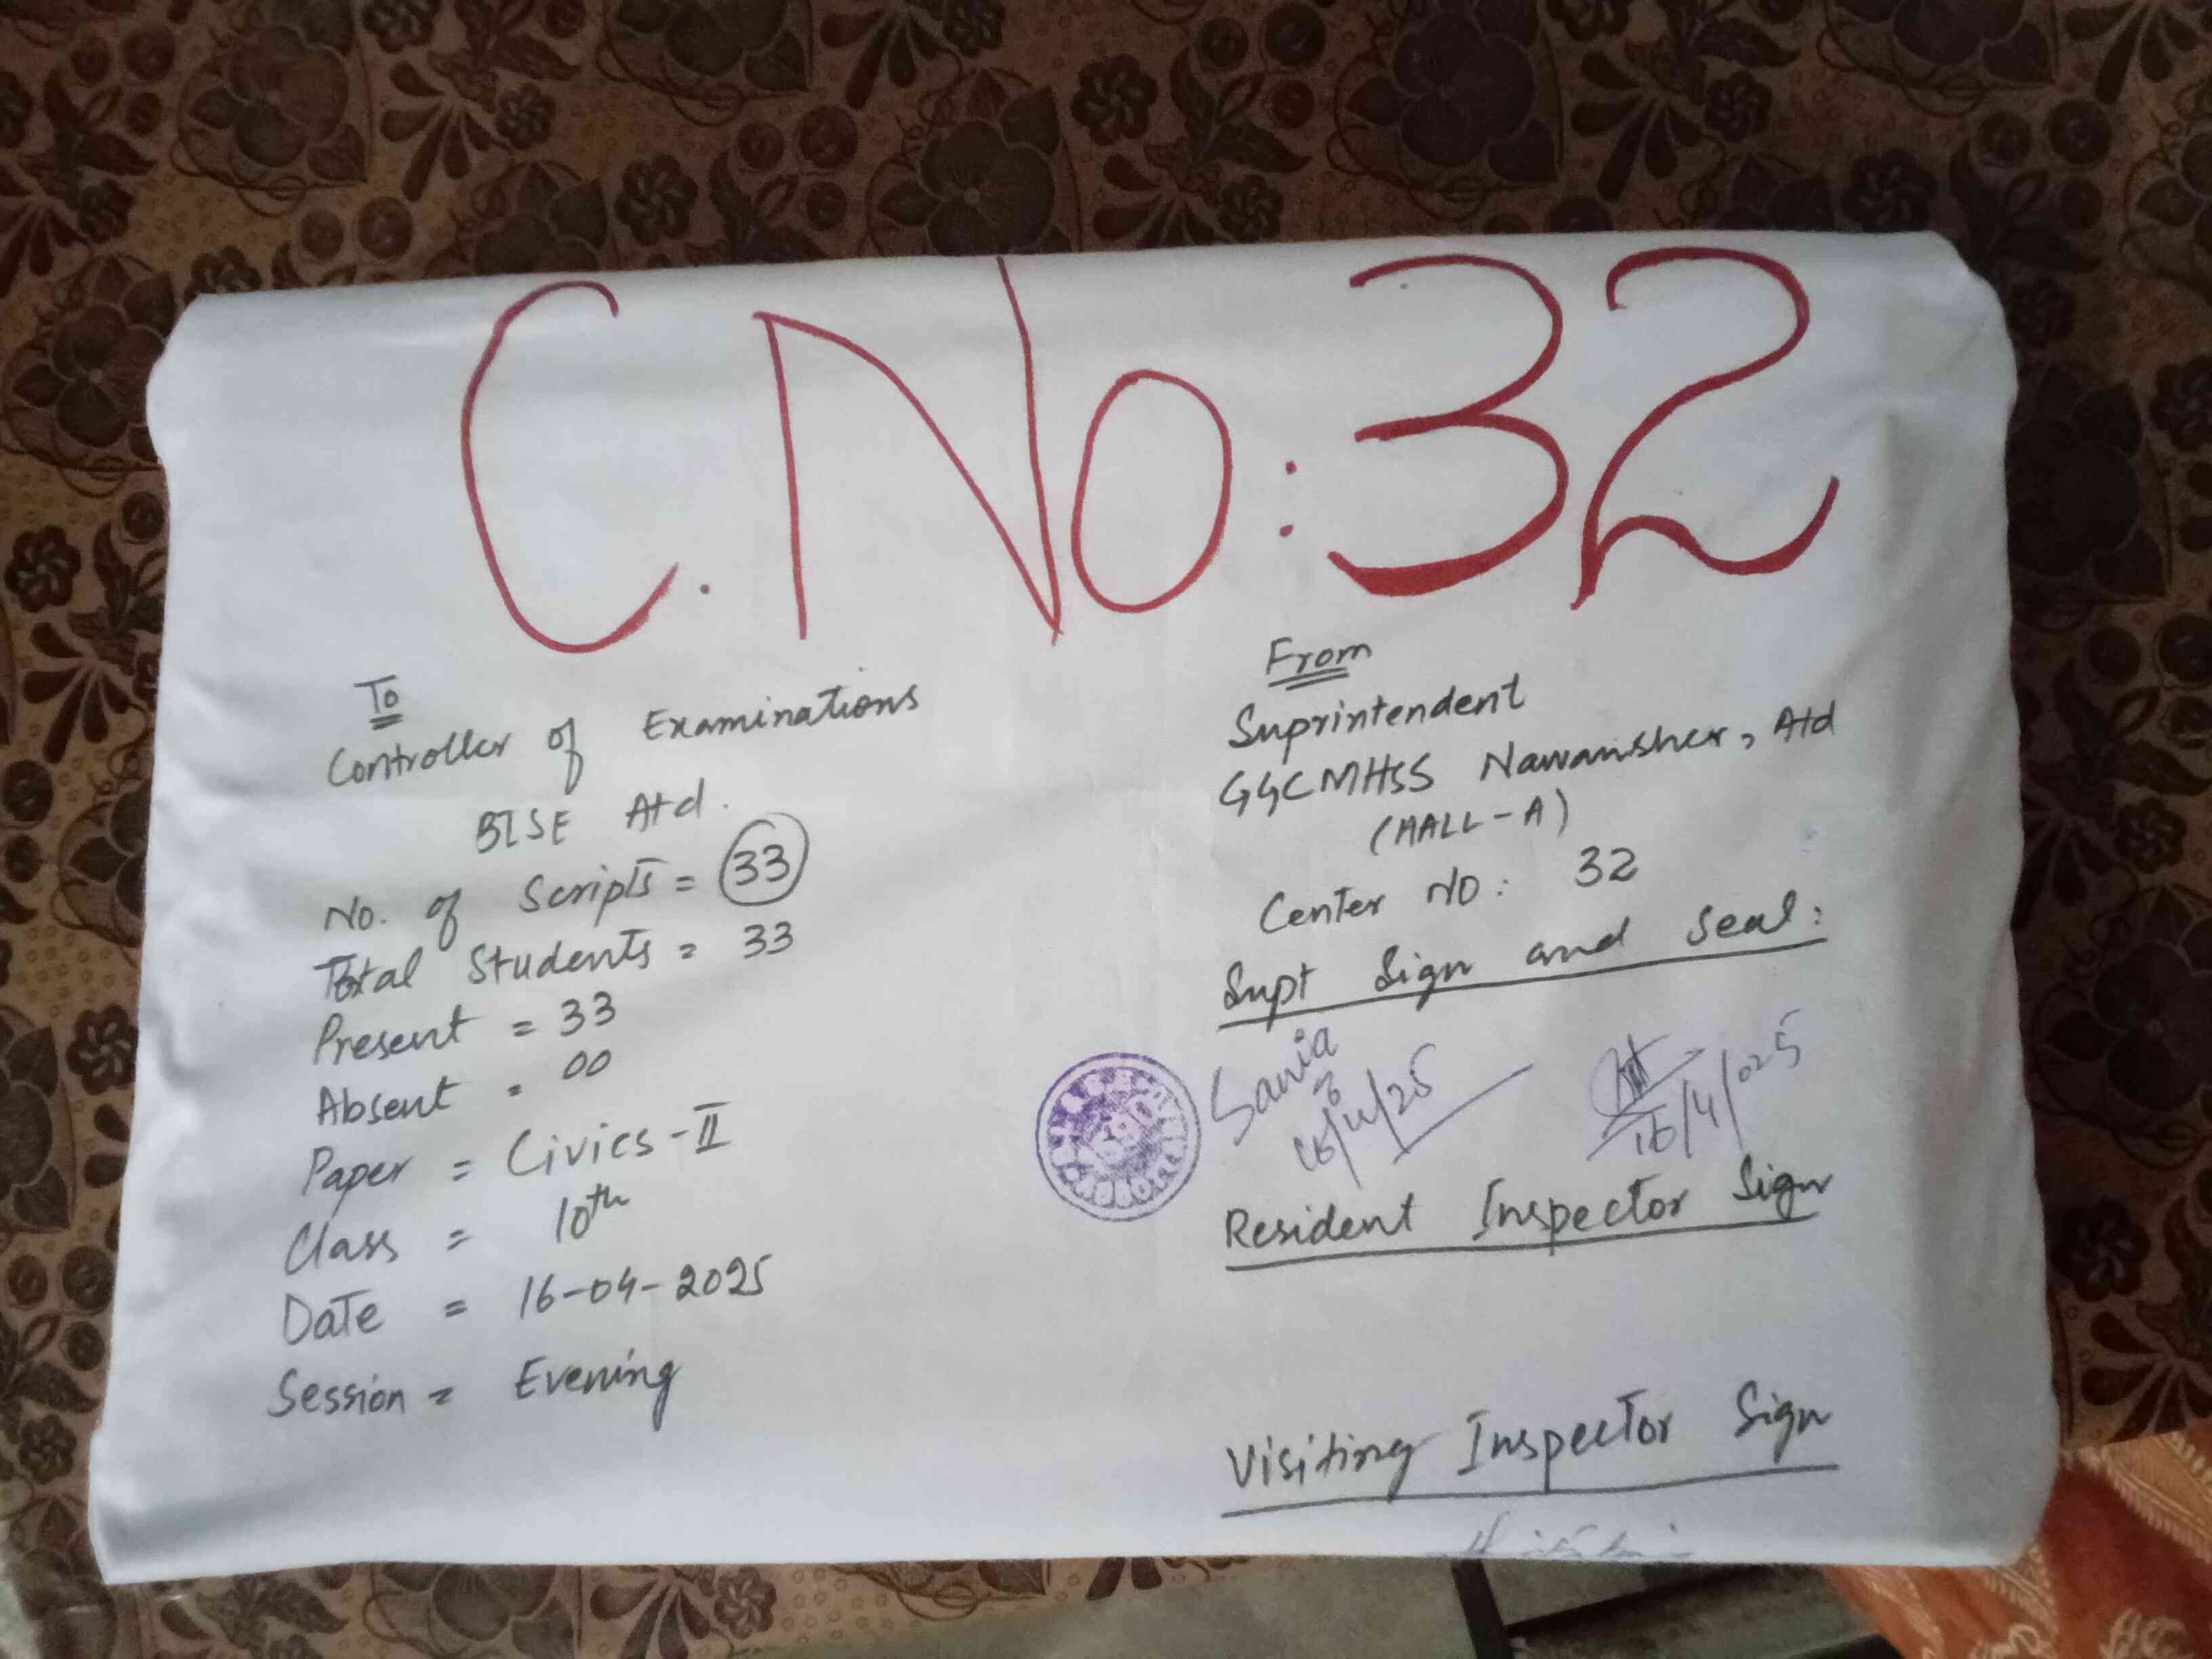 C.No:32
To
Controller of Examinations
BISE Atd.
No. of Scripts = 33
Total Students = 33
Present = 33
Absent = 00
Paper = Civics-II
Class = 10th
Date = 16-04-2025
Session = Evening
From
Suprintendent
GGCMHSS Nawansher, Atd
(HALL-A)
Center NO: 32
Supt Sign and Seal:
Sania
16/4/25
16/4/025
Resident Inspector Sign
Visiting Inspector Sign